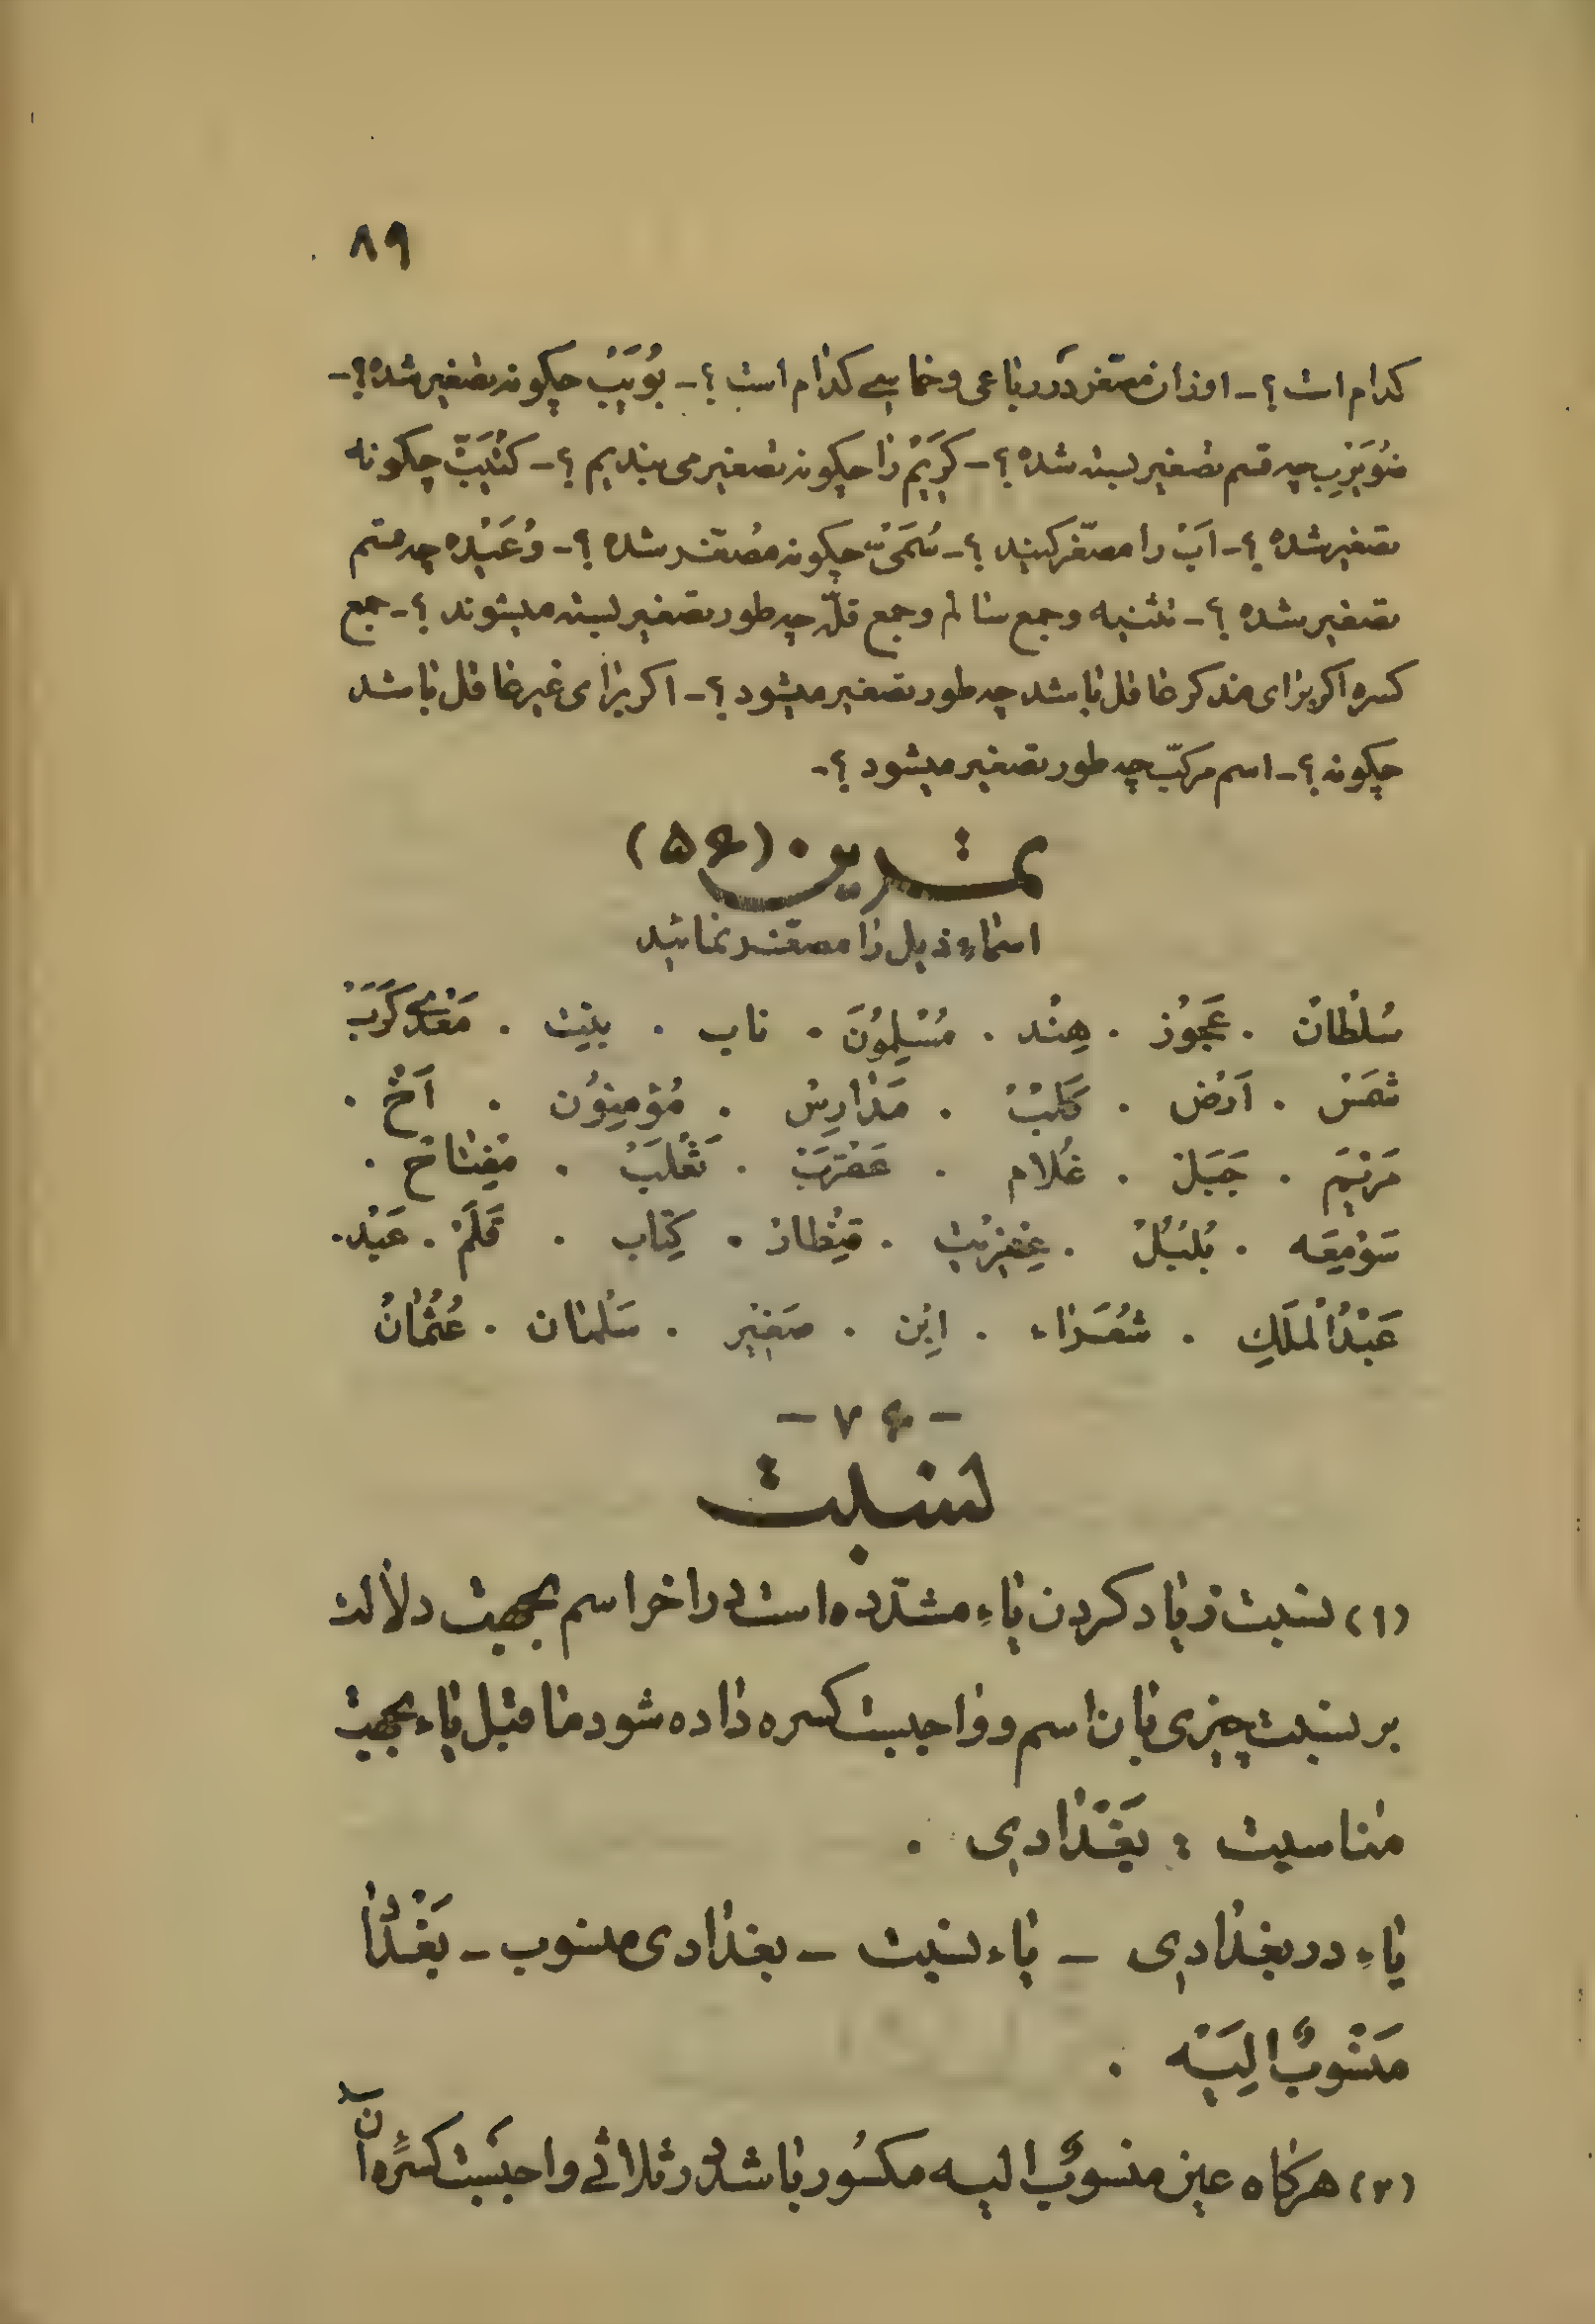 ۸۹
کدام است ؟ـ اوزان مصغّر در رباعی و خماسی کدام است ؟ـ بُوَیْبٌ چگونه تصغیر شده ؟ـ
ضُوَیْرِب چه قسم تصغیر بسته شده ؟ـ کَرِیْمٌ را چگونه تصغیر می بندیم ؟ـ کُتَیِّبٌ چگونه
تصغیر شده ؟ـ اَبٌ را مصغّر کنید ؟ـ سُمَیٌّ چگونه مصغّر شده ؟ـ وُعَیْده چه قسم
تصغیر شده ؟ـ تثنیه و جمع سالم و جمع قلّه چه طور تصغیر بسته میشوند ؟ـ جمع
کسره اگر برای مذکر عاقل باشد چه طور تصغیر میشود ؟ـ اگر برای غیر عاقل باشد
چگونه ؟ـ اسم مرکّب چه طور تصغیر میشود ؟ـ
تمرین (۵۶)
اسماء ذیل را مصغّر نمائید
سُلْطانٌ . عَجُوْز . هِنْد . مُسْلِمُوْنَ . ناب . بنیت . مَعْدِی کَرَبَ
شَمْسٌ . اَرْض . کَلْبٌ . مَدارِسٌ . مُؤْمِنُوْن . اَخٌ .
مَرْیَم . جَبَلٌ . غُلام . عَقْرَبٌ . ثَعْلَبٌ . مِفْتاحٌ .
سَوْمِعَه . بُلْبُلٌ . عِفْرِیْت . قِنْطارٌ . کِتاب . قَلَمٌ . عَیْد .
عَبْدُالْمَلَکِ . شُعَراء . اِبْن . صَغیْر . سَلْمان . عُثْمانُ
ـ ۷۶ ـ
نسبت
(۱) نسبت زیاد کردن یاء مشدّده است در اخر اسم بجهت دلالت
بر نسبت چیزی بان اسم و واجبست کسره داده شود ماقبل یاء بجهت
مناسبت : بَغْدادِی .
یاء در بغدادی ـ یاء نسبت ـ بغدادی منسوب ـ بَغْدادْ
مَنْسُوبٌ اِلَیْه .
(۲) هرگاه عین منسوبٌ الیه مکسُور باشد در ثلاثی واجبست کسرهٔ آن